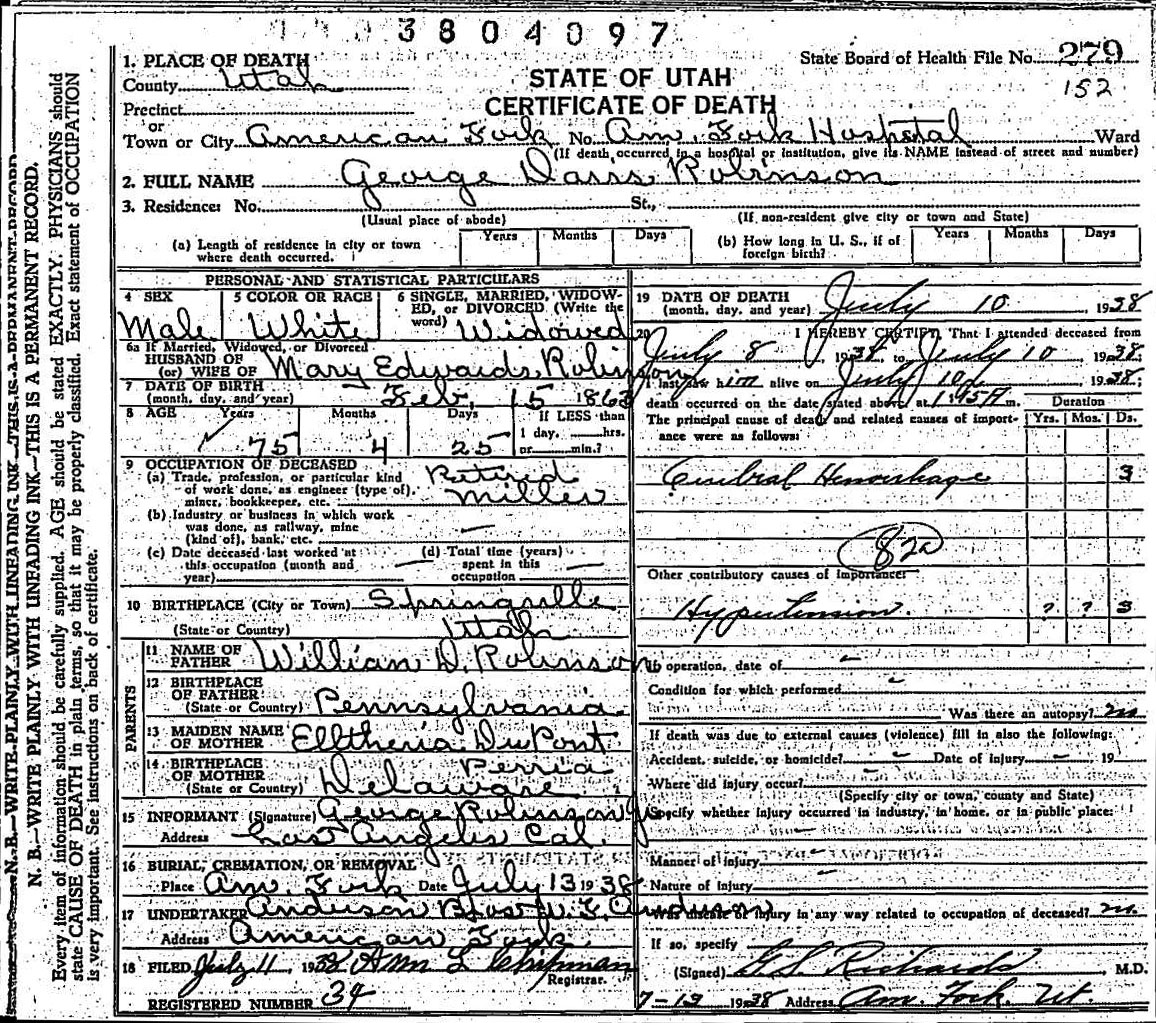 3804097
State Board of Health File No. 279
152
STATE OF UTAH
CERTIFICATE OF DEATH
1. PLACE OF DEATH
County Utah
Precinct
or
Town or City American Fork No. Am. Fork Hospital Ward
(If death occurred in a hospital or institution, give its NAME instead of street and number)
2. FULL NAME George Robinson
3. Residence: No. St.,
(Usual place of abode) (If non-resident give city or town and State)
(a) Length of residence in city or town where death occurred. Years Months Days
(b) How long in U. S., if of foreign birth? Years Months Days
PERSONAL AND STATISTICAL PARTICULARS
4 SEX Male
5 COLOR OR RACE White
6 SINGLE, MARRIED, WIDOWED, or DIVORCED (Write the word) Widowed
6a If Married, Widowed, or Divorced
HUSBAND OF
(or) WIFE OF Mary Edwards Robinson
7 DATE OF BIRTH
(month, day, and year) Feb. 15 1863
8 AGE Years Months Days If LESS than
75 4 25 1 day, hrs.
or min.?
9 OCCUPATION OF DECEASED
(a) Trade, profession, or particular kind Retired
of work done, as engineer (type of), Miller
miner, bookkeeper, etc.
(b) Industry or business in which work
was done, as railway, mine
(kind of), bank, etc. —
(c) Date deceased last worked at
this occupation (month and
year) —
(d) Total time (years)
spent in this
occupation —
10 BIRTHPLACE (City or Town) Springville
(State or Country) Utah
PARENTS
11 NAME OF
FATHER William D. Robinson
12 BIRTHPLACE
OF FATHER
(State or Country) Pennsylvania
13 MAIDEN NAME
OF MOTHER DuPont
14 BIRTHPLACE
OF MOTHER
(State or Country) Delaware
15 INFORMANT (Signature) George Robinson Jr.
Address Los Angeles Cal.
16 BURIAL, CREMATION, OR REMOVAL
Place Am. Fork Date July 13 1938
17 UNDERTAKER Anderson Anderson
Address American Fork
18 FILED July 11, 1938 L Chipman
Registrar.
REGISTERED NUMBER 34
19 DATE OF DEATH
(month, day, and year) July 10 1938
20 I HEREBY CERTIFY, That I attended deceased from
July 8, 1938, to July 10, 1938;
I last saw him alive on July 10, 1938;
death occurred on the date stated above at m.
Duration
The principal cause of death and related causes of importance were as follows: Yrs. Mos. Ds.
Cerebral Hemorrhage 3
82a
Other contributory causes of importance:
Hypertension ? ? 3
If operation, date of -
Condition for which performed -
Was there an autopsy? no
If death was due to external causes (violence) fill in also the following:
Accident, suicide, or homicide? - Date of injury - 19
Where did injury occur? -
(Specify city or town, county and State)
Specify whether injury occurred in industry, in home, or in public place:
Manner of injury -
Nature of injury -
Was disease or injury in any way related to occupation of deceased? no
If so, specify
(Signed) G.S. Richards, M.D.
7-13 1938 Address Am. Fork, Ut.
N. B.—WRITE PLAINLY WITH UNFADING INK—THIS IS A PERMANENT RECORD
N. B.—WRITE PLAINLY WITH UNFADING INK—THIS IS A PERMANENT RECORD.
Every item of information should be carefully supplied. AGE should be stated EXACTLY. PHYSICIANS should
state CAUSE OF DEATH in plain terms, so that it may be properly classified. Exact statement of OCCUPATION
is very important. See instructions on back of certificate.